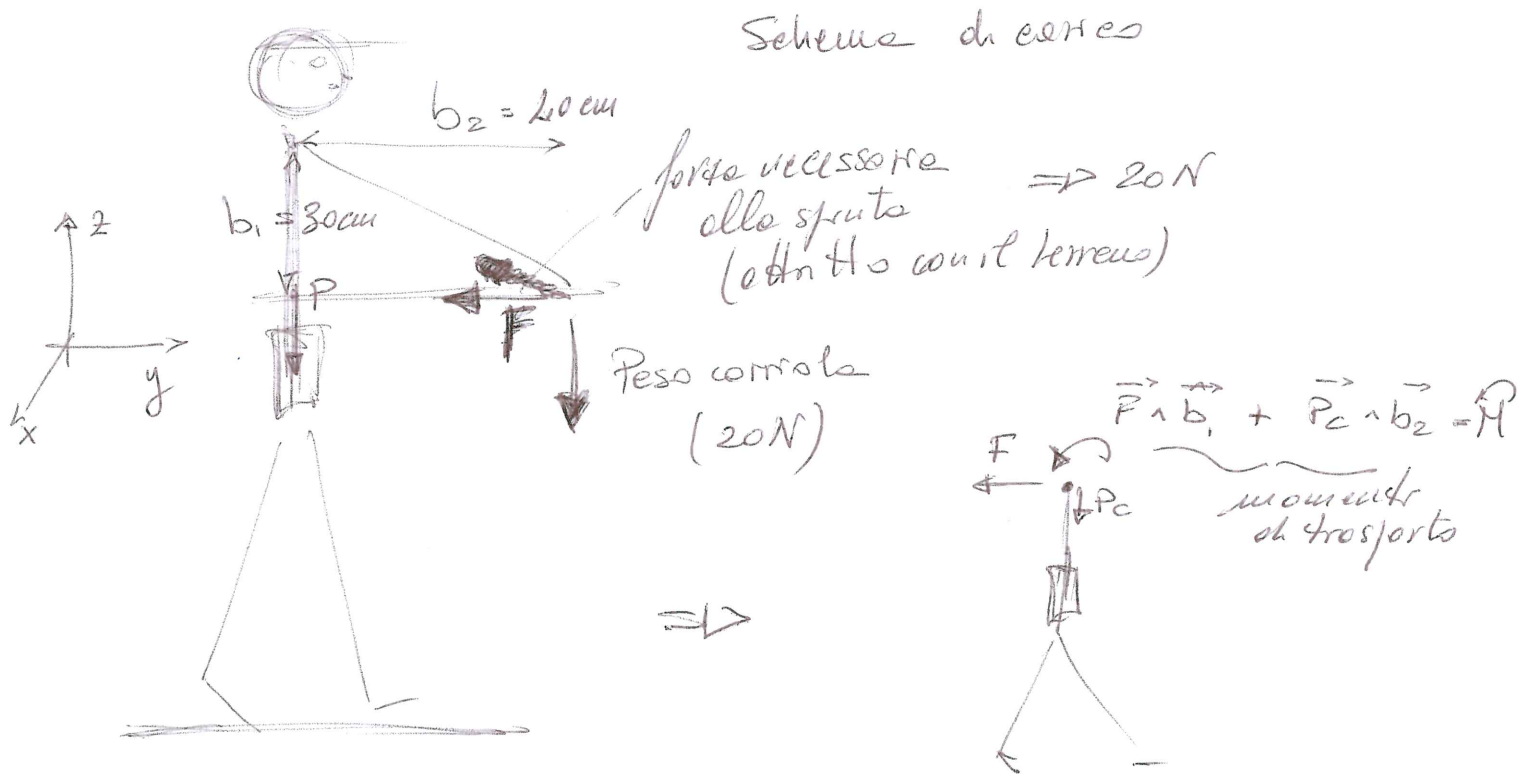 Schema di carico
b₂ = 40cm
forza necessaria
alla spinta
(attrito con il terreno)
=> 20N
z
b₁ = 30cm
P
F
y
x
Peso carriola
(20N)
F ∧ b₁ + Pc ∧ b₂ = M
momenti
di trasporto
F
Pc
=>